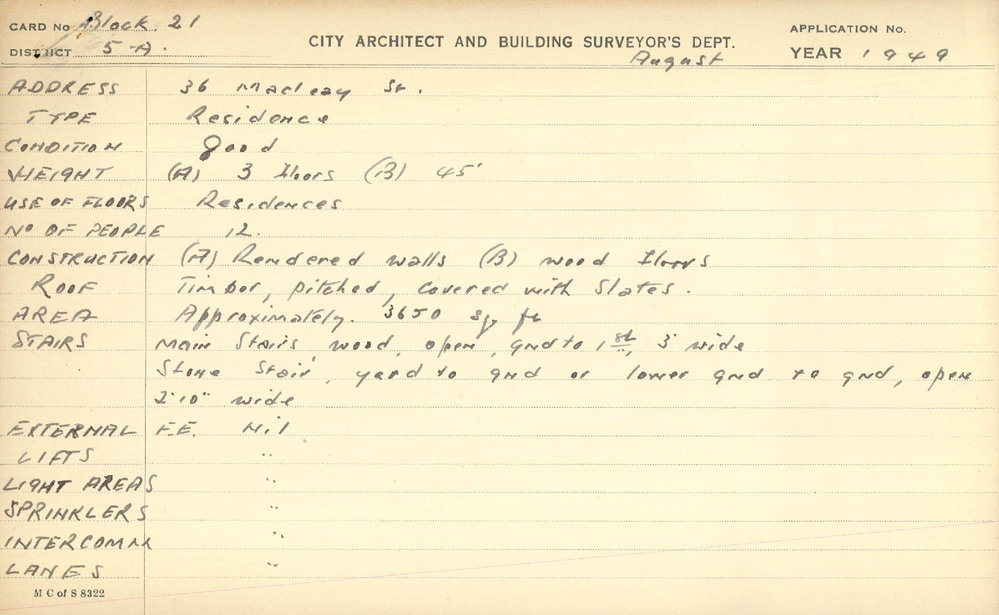 CARD No Block 21
DISTRICT 5-A.
CITY ARCHITECT AND BUILDING SURVEYOR'S DEPT.
August
APPLICATION No.
YEAR 1949
ADDRESS 36 Macleay St.
TYPE Residence
CONDITION Good
HEIGHT (A) 3 floors (B) 45'
USE OF FLOORS Residences
No OF PEOPLE 12.
CONSTRUCTION (A) Rendered walls (B) wood floors
ROOF Timber, pitched, covered with Slates.
AREA Approximately. 3650 sq ft
STAIRS Main Stairs, wood, open, gnd to 1st, 3' wide
Stone Stair, yard to gnd or lower gnd to gnd, open
2'10" wide
EXTERNAL F.E. Nil
LIFTS "
LIGHT AREAS "
SPRINKLERS "
INTERCOMM "
LANES "
M C of S 8322